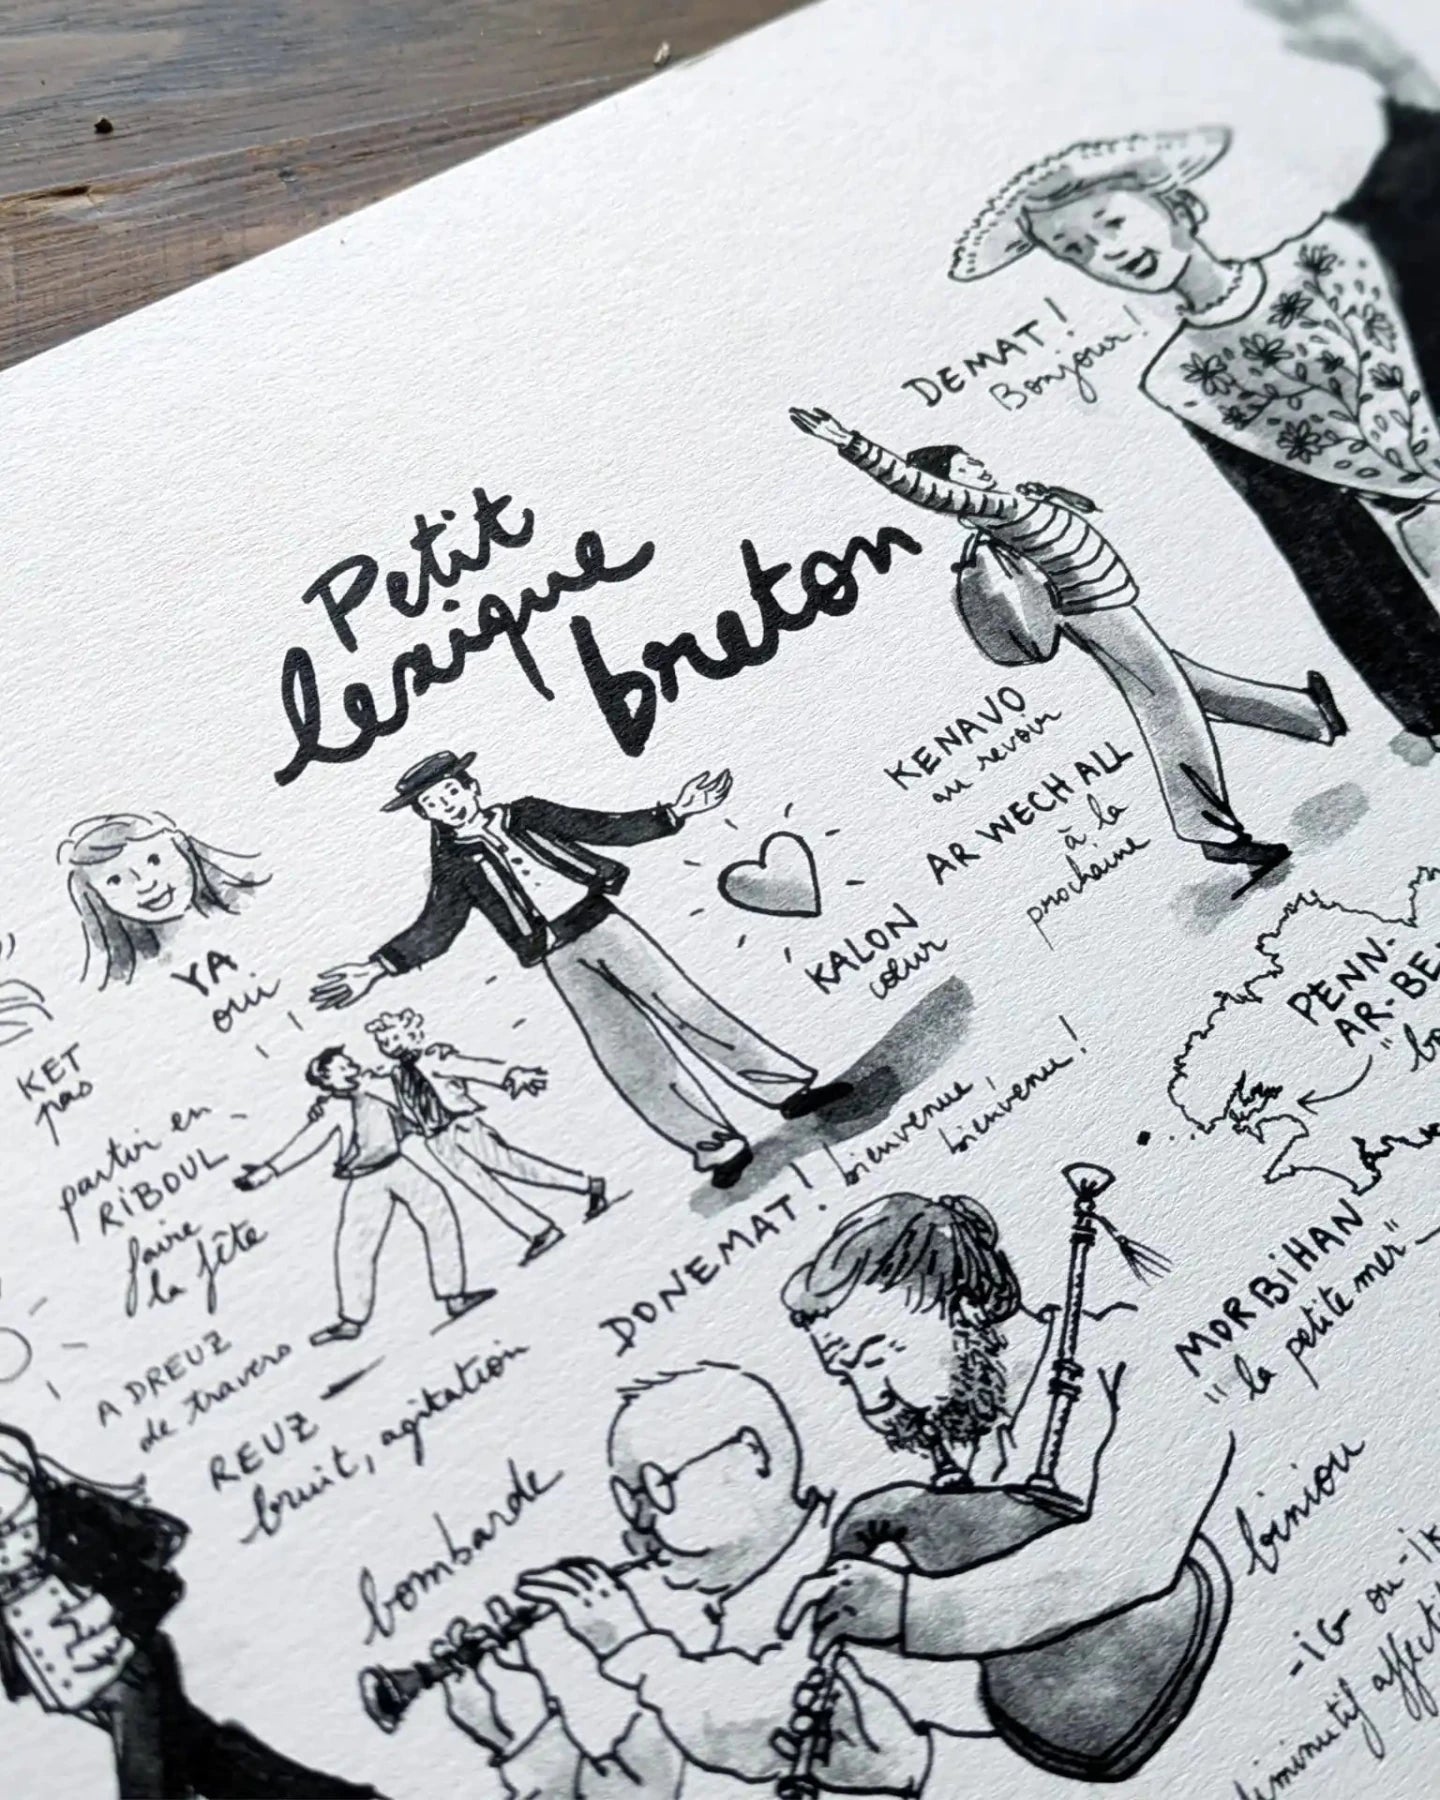 DEMAT!
Bonjour!
Petit
lexique
breton
KENAVO
au revoir
AR WECH ALL
à la
prochaine
KALON
cœur
YA
oui
KET
pas
partir en
RIBOUL
faire
la fête
DONEMAT!
bienvenue,
bienvenue!
PENN-
AR-BE
MORBIHAN
"la petite mer"
A DREUZ
de travers
REUZ
bruit, agitation
bombarde
biniou
-iG ou -iK
diminutif affecti